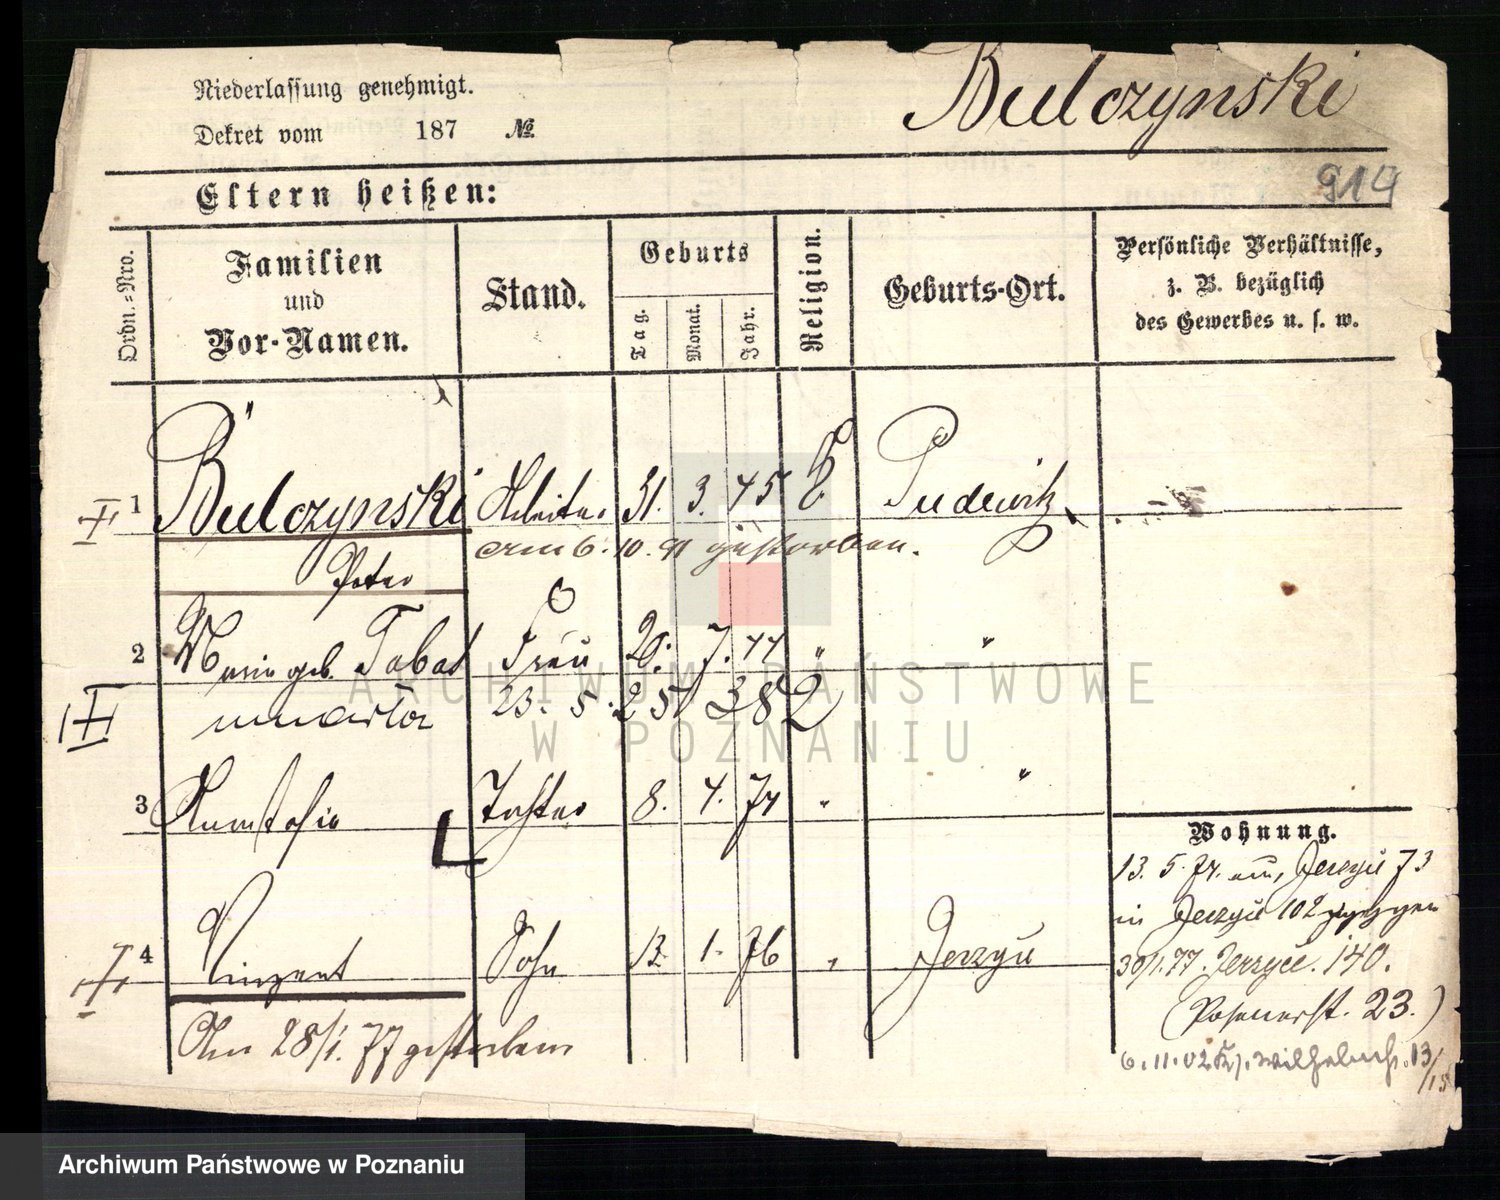 Niederlassung genehmigt.
Bulczynski
Dekret vom 187 №
914
Eltern heißen:
Ordn.-Nro.
Familien
und
Vor-Namen.
Stand.
Geburts
Tag.
Monat.
Jahr.
Religion.
Geburts-Ort.
Persönliche Verhältnisse,
z. B. bezüglich
des Gewerbes u. s. w.
1 Bulczynski Arbeiter 31. 3. 45 Pudewitz
Peter
am 6. 10. 91 gestorben.
2 Marie geb. Tabat Frau 20. 7. 44 "
umarła 23. 5. 25
3 Anastasia Tochter 8. 4. 74 " "
4 Vinzent Sohn 13. 1. 76 " Jerzyce
Am 28/1. 77 gestorben
Wohnung.
13. 5. 74. Jerzyce 73
in Jerzyce 102 gezogen
30/1. 77. Jerzyce. 140.
(Posenerst. 23.)
6. 11. 02 Wilhelmstr. 13/15
ARCHIWUM PAŃSTWOWE
W POZNANIU
Archiwum Państwowe w Poznaniu